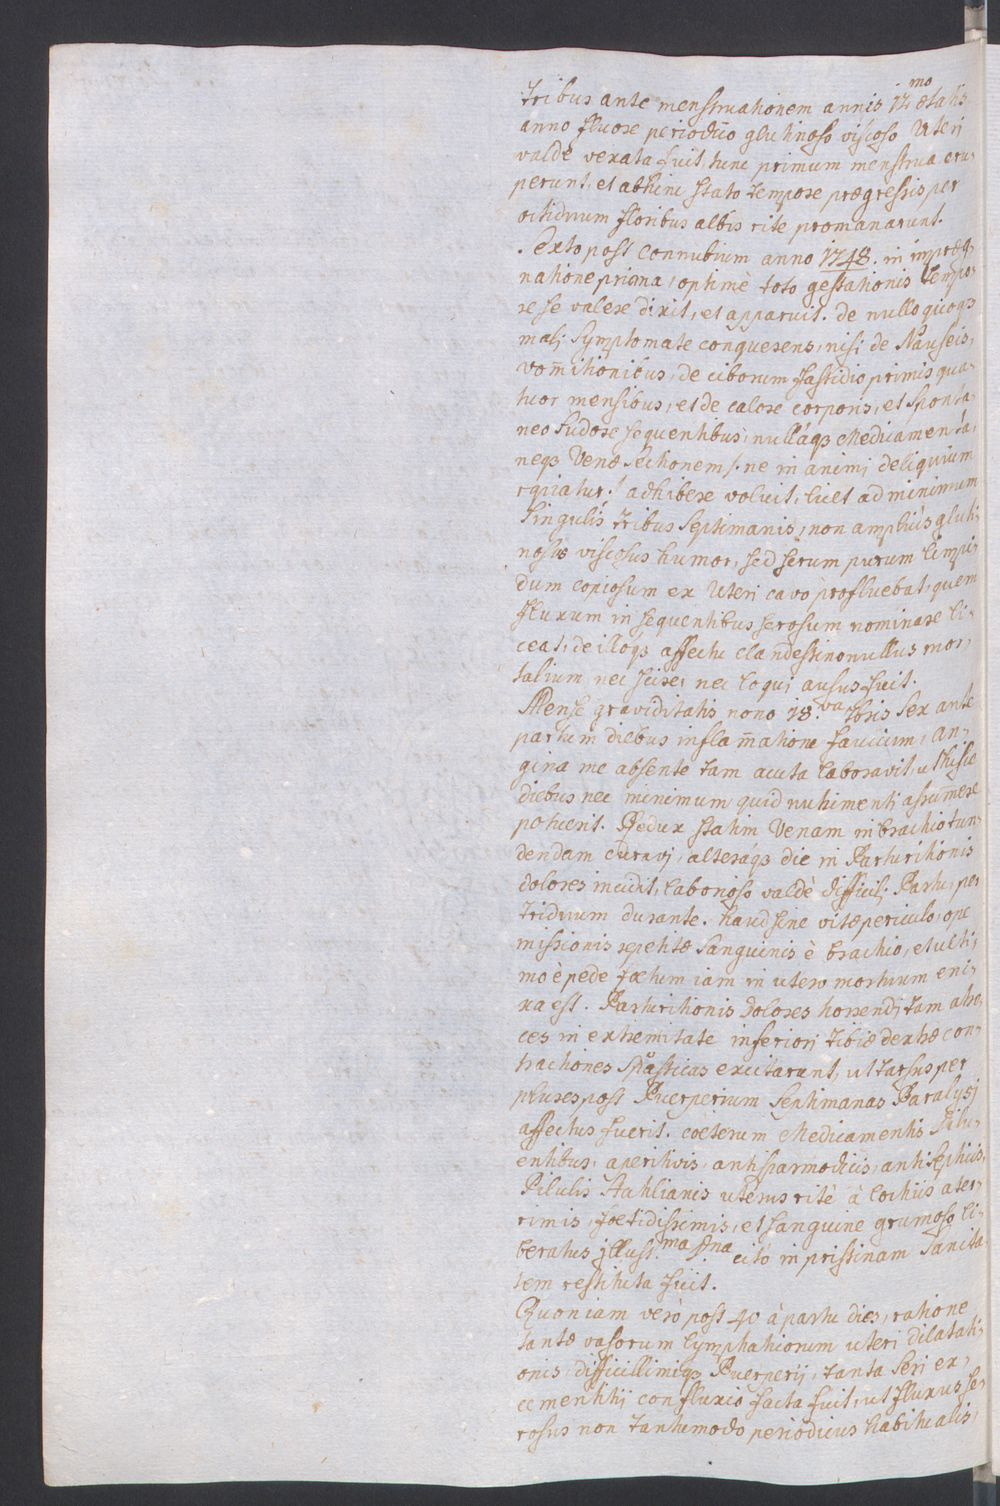 tribus ante menstruationem annis 12mo ætatis
anno fluore periodico glutinoso viscoso Uteri
valdè vexata fuit, tunc primum menstrua eru-
perunt, et abhinc stato tempore prægressis per
octiduum floribus albis rite promanarunt.
. Exto post Connubium anno 1748. in impræg-
natione prima, optimè toto gestationis tempo-
re se valere dixit, et apparuit. de nullo quoqȝ
mali Symptomate conquerens, nisi de Nauseis,
vom̄itionibus, de ciborum fastidio primis qua-
tuor mensibus, et de calore corporis, et sponta-
neo sudore sequentibus, nullaqȝ Medicamenta,
neqȝ Venæ sectionem /. ne in animi deliquium
./ adhibere voluit, licet ad minimum
singulis tribus septimanis, non amplius gluti-
nosus viscosus humor, sed serum purum limpi-
dum copiosum ex Uteri cavo profluebat, quem
fluxum in sequentibus serosum nominare li-
ceat, de illoqȝ affectu clandestino nullus mor-
talium nec scire, nec loqui ausus fuit.
Mense graviditatis nono 18.va 7bris sex ante
partum diebus inflam̄atione faucium, an-
gina me absente tam acuta laboravit, ut hisce
diebus nec minimum quid nutrimenti assum̄ere
potuerit. Redux statim Venam in brachio tun-
dendam curavi, alteráqȝ die in Parturitionis
dolores incidit, laborioso valdè difficili Partu, per
triduum durante. haud sine vitæ periculo, ope
missionis repetitæ Sanguinis è brachio, et ulti-
mo è pede foetum iam in utero mortuum eni-
xa est. Parturitionis dolores horrendi tam atro-
ces in extremitate inferiori tibiæ dextræ con-
tractiones Spasticas excitarunt, ut tarsus per
plures post Puerperium Septimanas Paralysi
affectus fuerit. coeterum Medicamentis
entibus, aperitivis, antispasmodicis, antisepticis,
Pilulis Stahlianis uterus ritè à lochiis ater-
rimis, foetidissimis, et sanguine grumoso li-
beratus jllust.ma Dna citò in pristinam Sanita-
tem restituta fuit.
Quoniam verò post 40 à partu dies, ratione
tantæ vasorum lymphaticorum uteri dilatati-
onis, difficillimiqȝ Puerperij, tanta Seri ex-
crementitij confluxio facta fuit, ut fluxus se-
rosus non tantumodo periodicus habitualis,